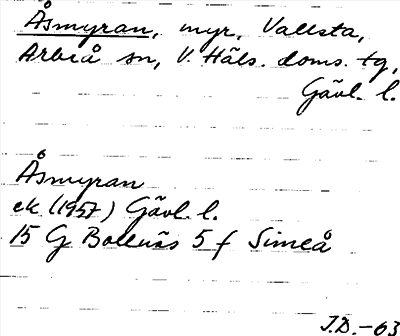 Åsmyran, myr, Vallsta,
Arbrå sn, V. Häls. doms. tg,
Gävl. l.
Åsmyran
ek (1957) Gävl. l.
15 G Bollnäs 5 f Simeå
J.D.-63